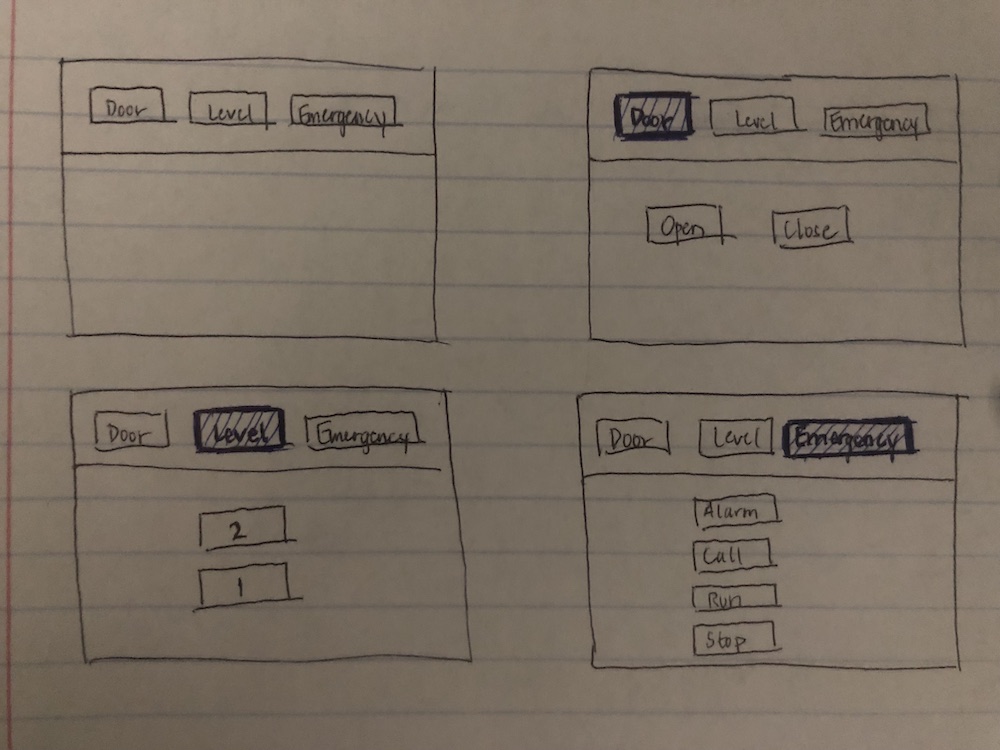 Door Level Emergency
Door Level Emergency
Open Close
Door Level Emergency
2
1
Door Level Emergency
Alarm
Call
Run
Stop